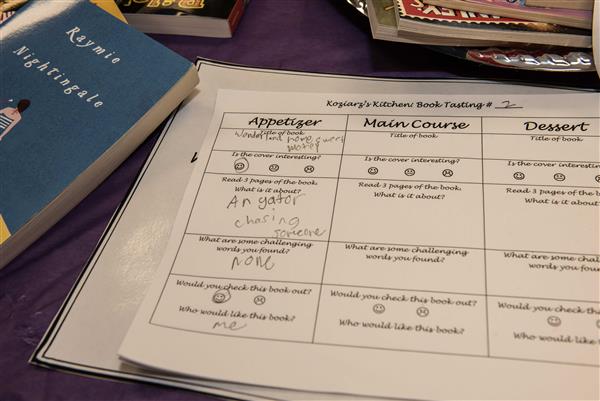 Raymie
Nightingale
Koziarz's Kitchen: Book Tasting # 2
Appetizer
Main Course
Dessert
Title of book
Title of book
Title of book
Wonderland home sweet
Is the cover interesting?
Is the cover interesting?
Is the cover interesting?
Read 3 pages of the book.
What is it about?
Read 3 pages of the book.
What is it about?
Read 3 pages of the book.
What is it about?
An gator
chasing
someone
What are some challenging
words you found?
What are some challenging
words you found?
What are some challenging
words you found?
none
Would you check this book out?
Would you check this book out?
Would you check this book
Who would like this book?
Who would like this book?
Who would like this book?
me